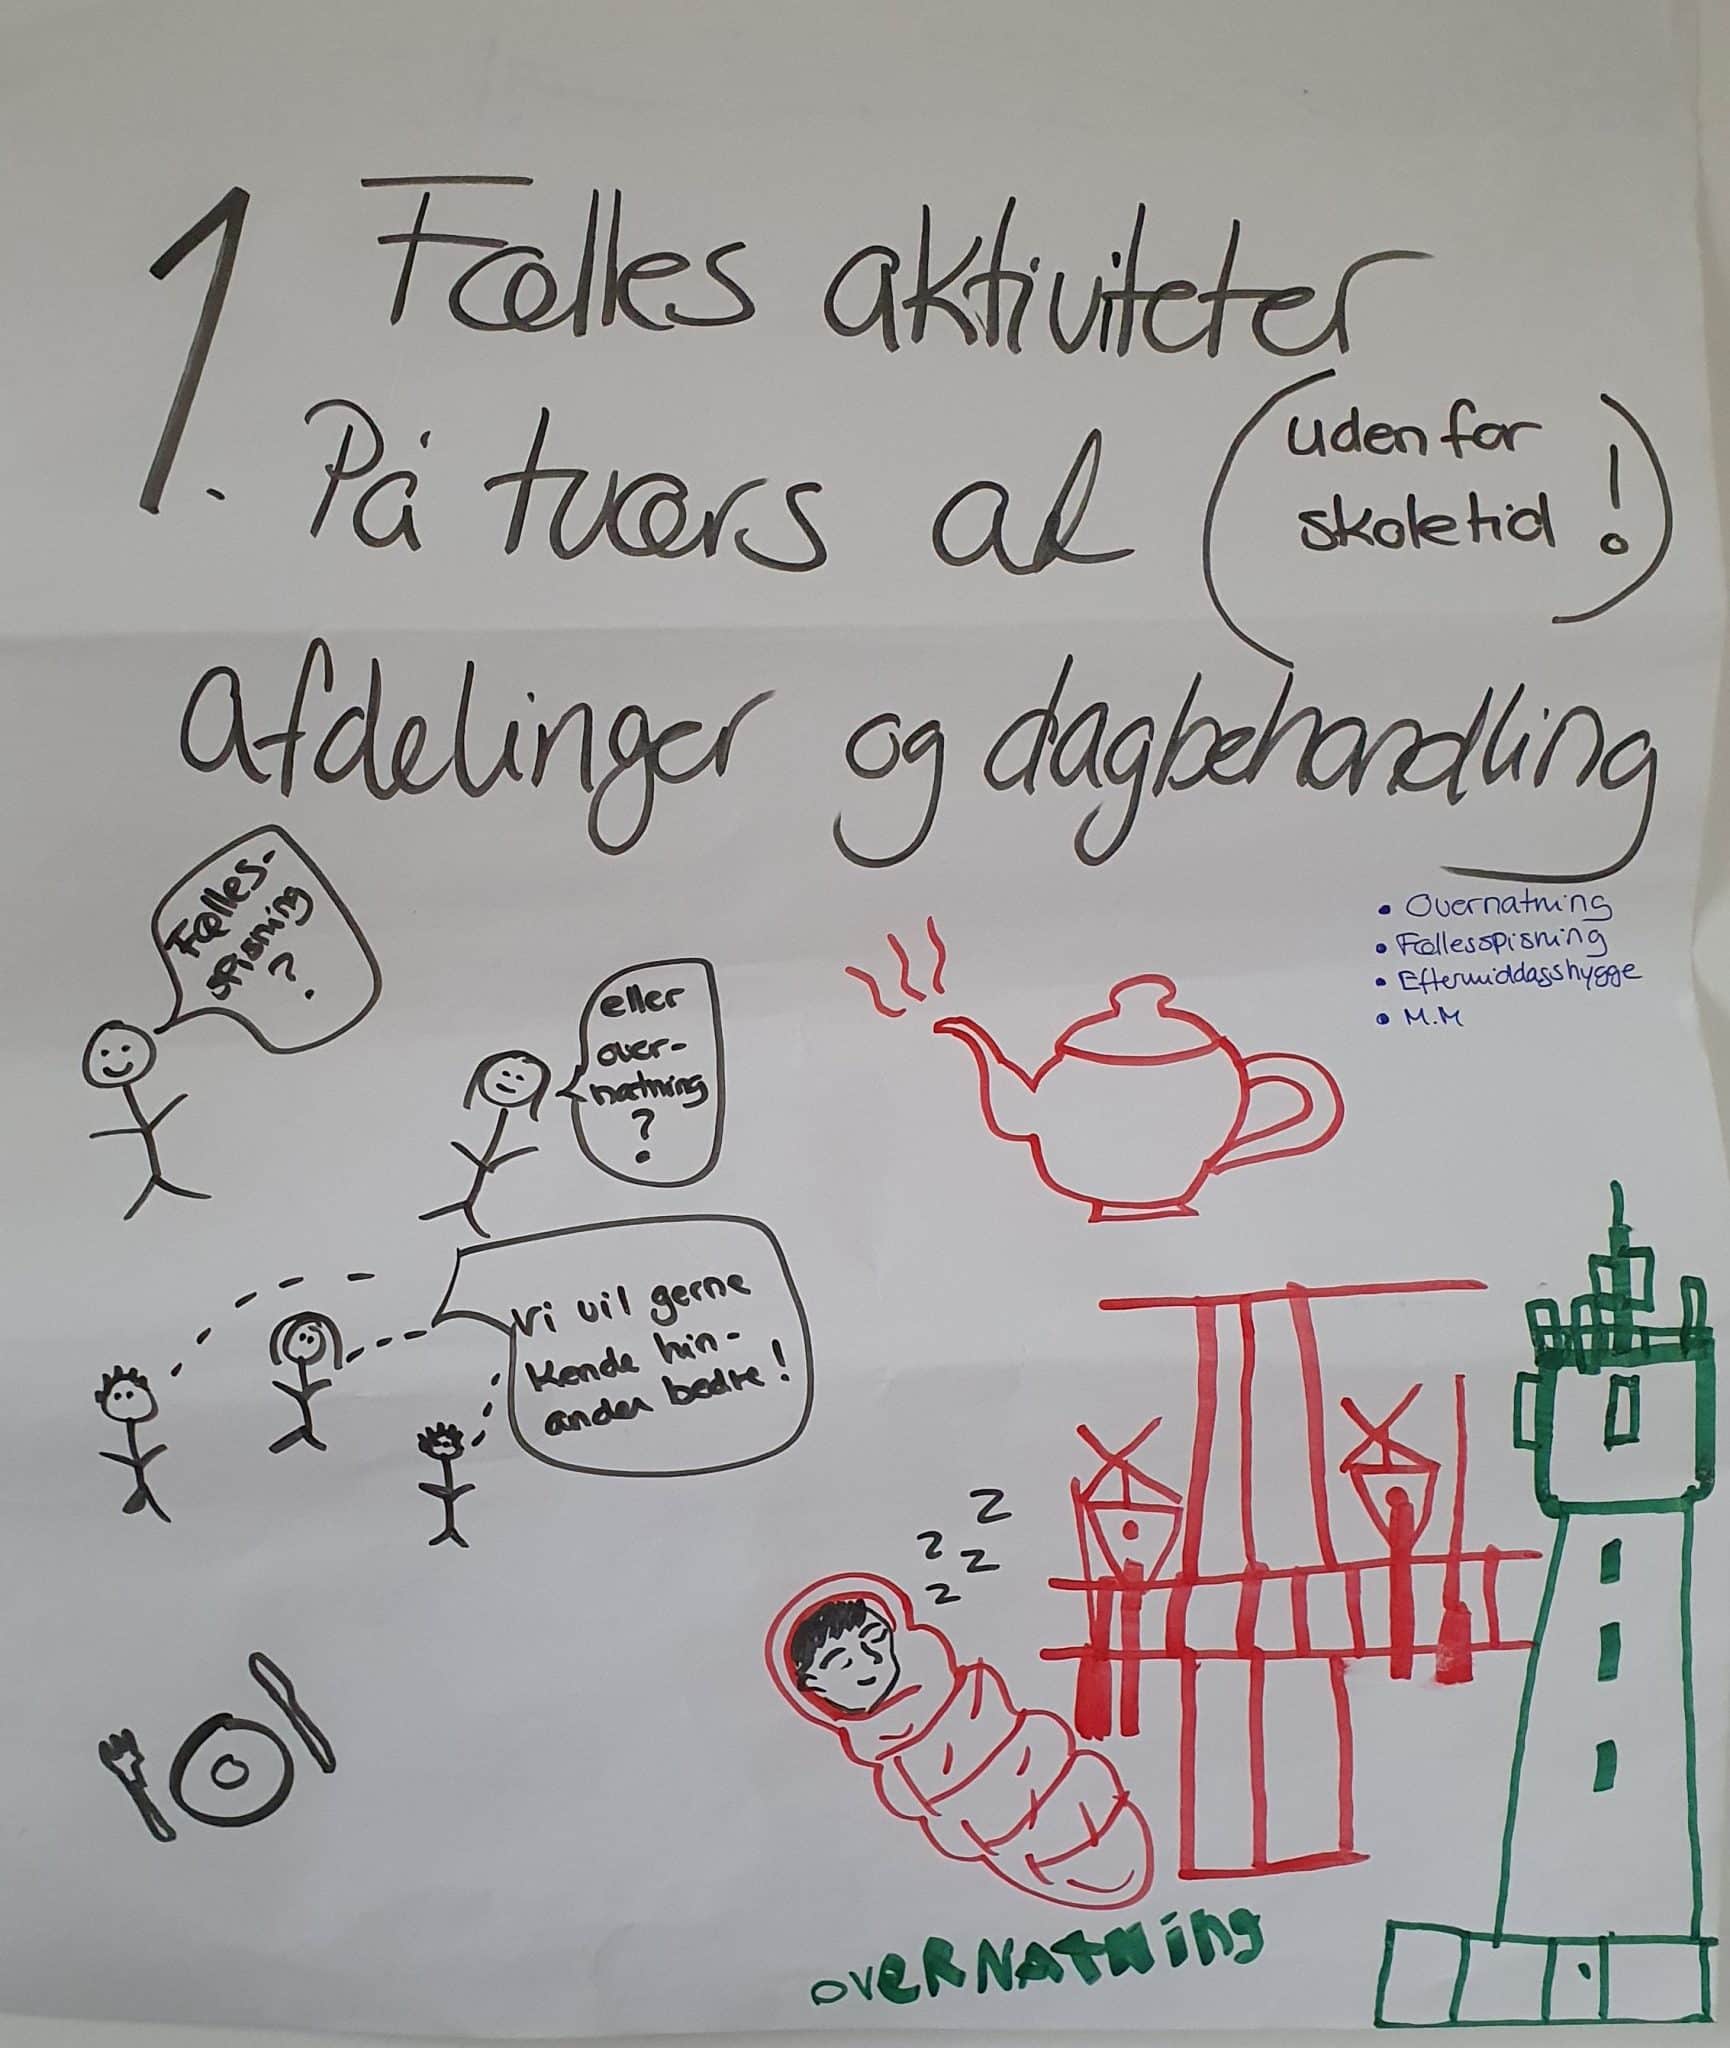 1. Fælles aktiviteter
På tværs af
(udenfor
skoletid!)
afdelinger og dagbehandling
Fælles-
spisning
?
eller
over-
natning
?
Vi vil gerne
kende hin-
anden bedre!
• Overnatning
• Fællesspisning
• Eftermiddagshygge
• M.M
z
z
z
z
OVERNATNING